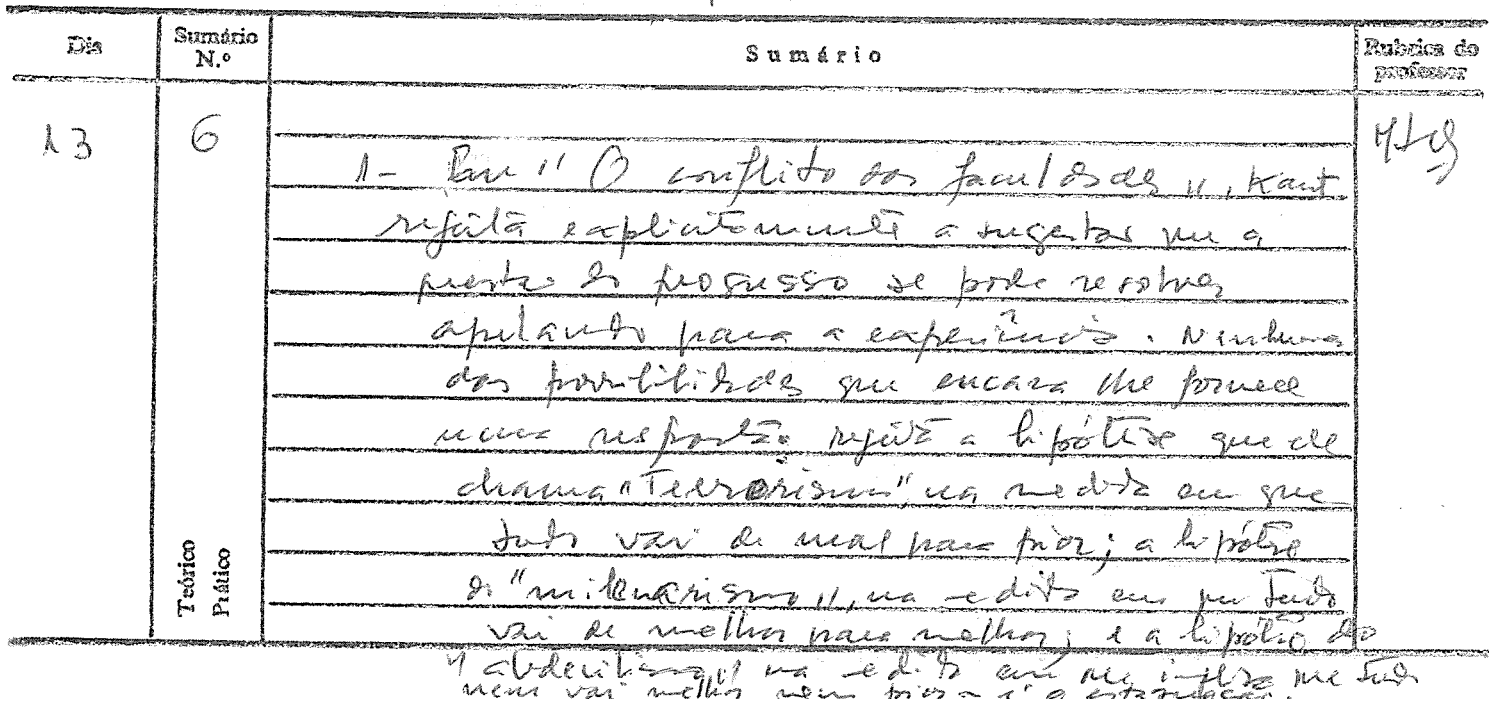 Dia Sumário N.º Sumário Rubrica do professor
13 6
1- Em "O conflito das faculdades", Kant
rejeita explicitamente a sugestão que a
questão do progresso se pode resolver
apelando para a experiência. Nenhuma
das possibilidades que encara lhe fornece
uma resposta: rejeita a hipótese que ele
chama "Terrorismo", na medida em que
tudo vai de mal para pior; a hipótese
do "milenarismo", na medida em que tudo
vai de melhor para melhor; e a hipótese do
"abderitismo", na medida em que implica que tudo
nem vai melhor nem pior - é a estagnação.
Teórico
Prático